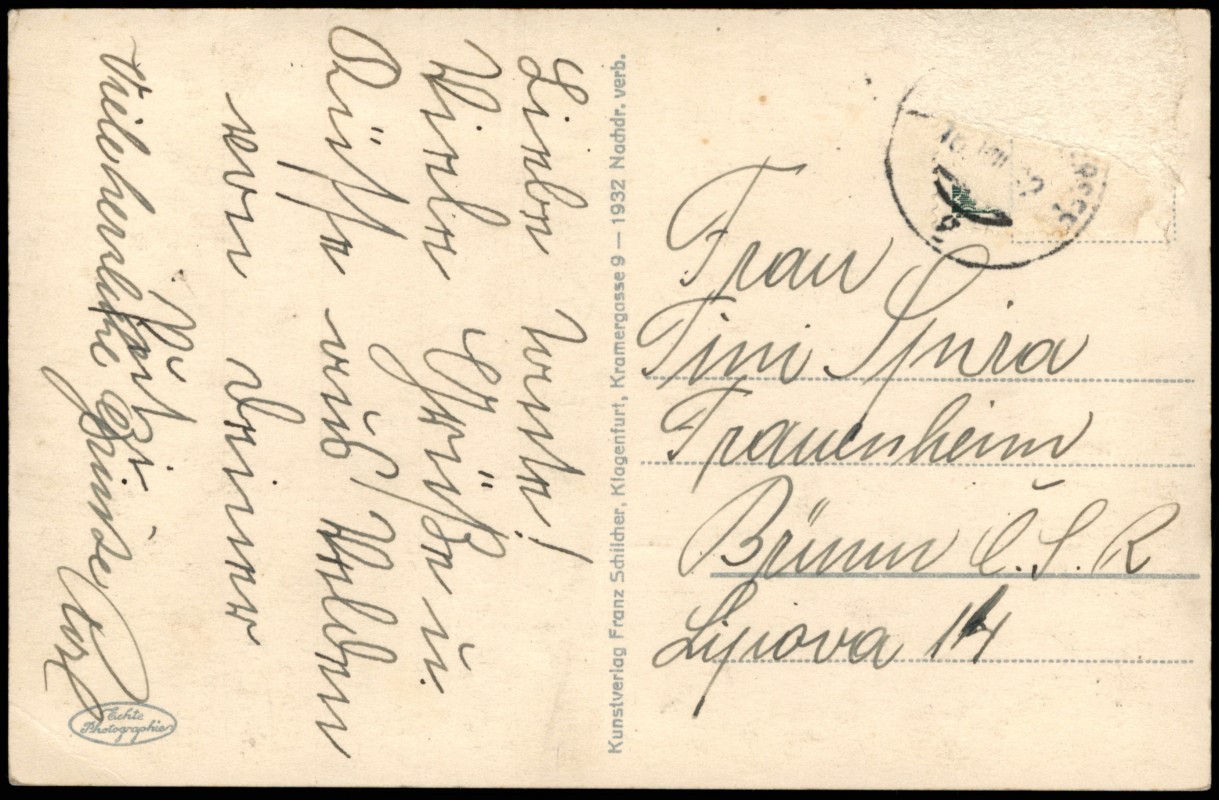 Liebe Tante!
Viele Grüße u.
Küsse aus Velden
von deiner
Viele herzliche Grüsse
Echte
Photographie
Kunstverlag Franz Schilcher, Klagenfurt, Kramergasse 9 — 1932 Nachdr. verb.
Frau
Fini Spira
Frauenheim
Brünn Č.S.R
Lipova 14